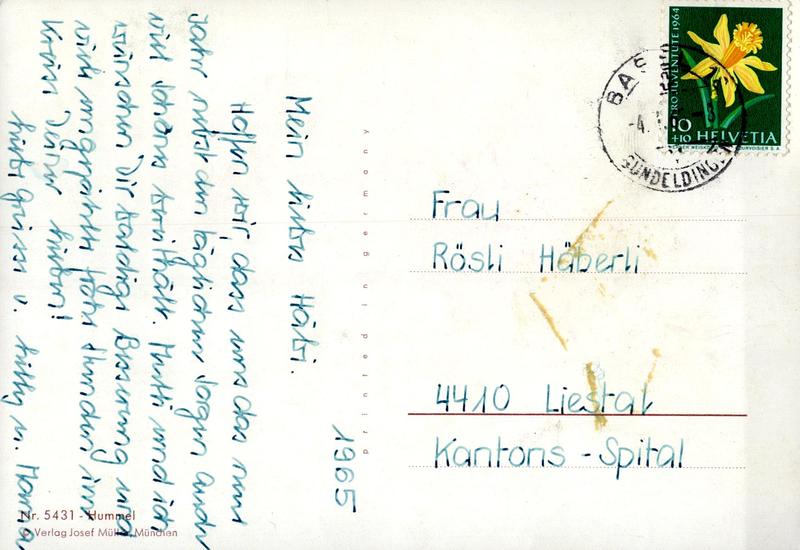 1965
Mein liebes Häbi.
Hoffen wir, dass uns das neue
Jahr nebst den täglichen Sorgen, auch
viel Schönes bereithält. Mutti und ich
wünschen Dir baldige Besserung und
viele ungezählt frohe Stunden im
Kreise Deiner Lieben!
Liebi Grüess v. Lilly u. Mama
Nr. 5431 - Hummel
© Verlag Josef Müller, München
printed in germany
PRO JUVENTUTE 1964
10
+10 HELVETIA
COURVOISIER S.A.
BAS
-4.
GUNDELDINGEN
Frau
Rösli Häberli
4410 Liestal
Kantons-Spital